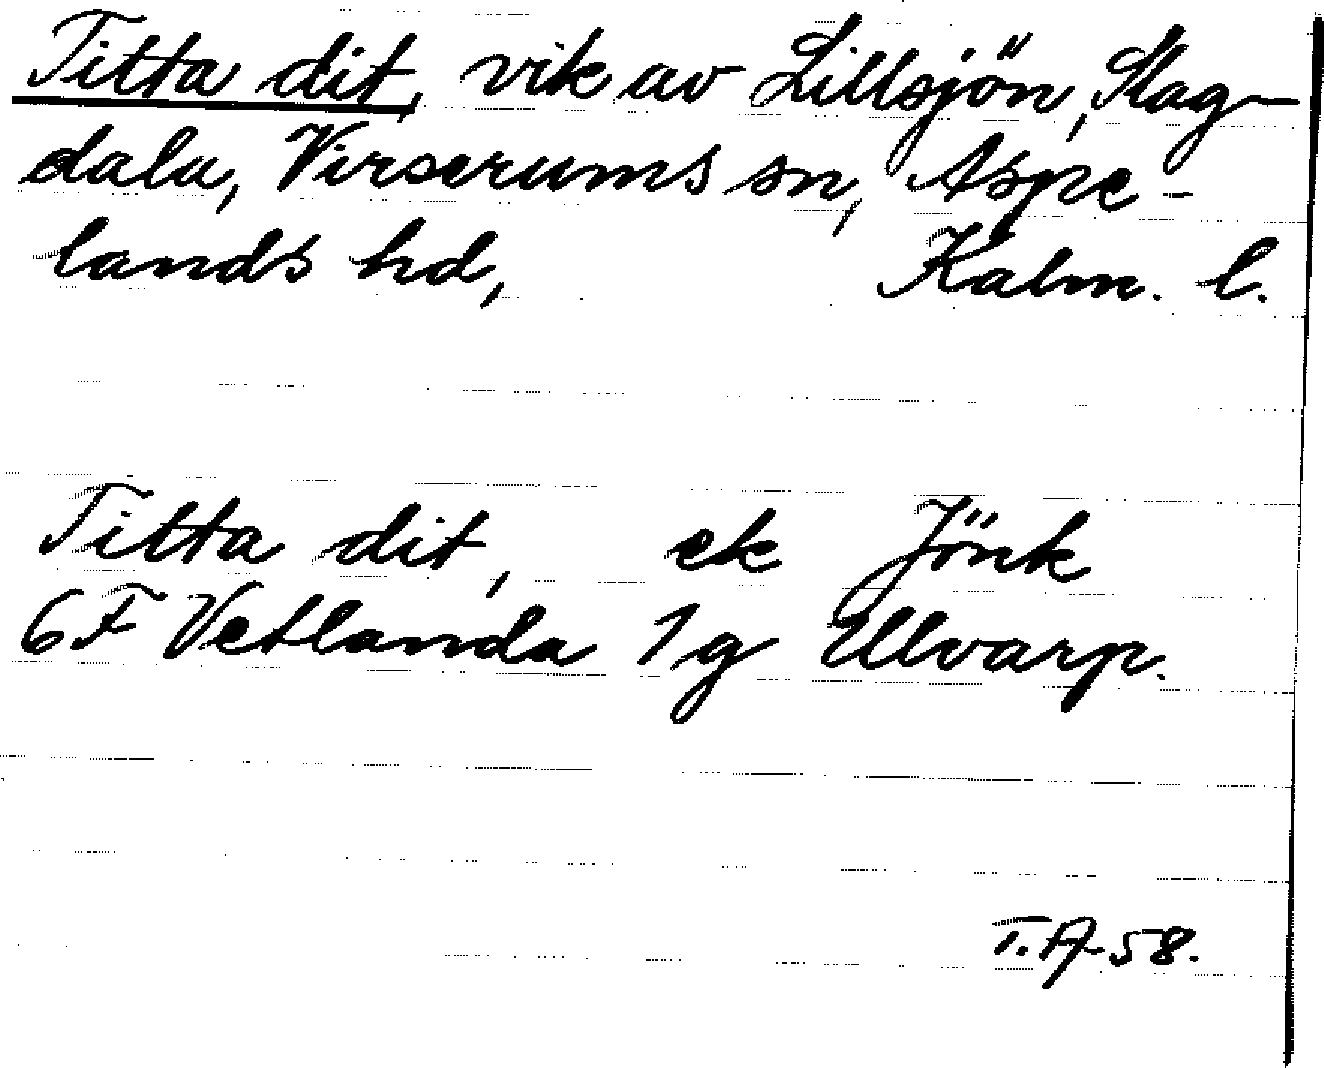 Titta dit, vik av Lillsjön, Slag-
dala, Virserums sn, Aspe-
lands hd, Kalm. l.
Titta dit, ek Jönk
6F Vetlanda 1g Ullvarp.
T.A-58.